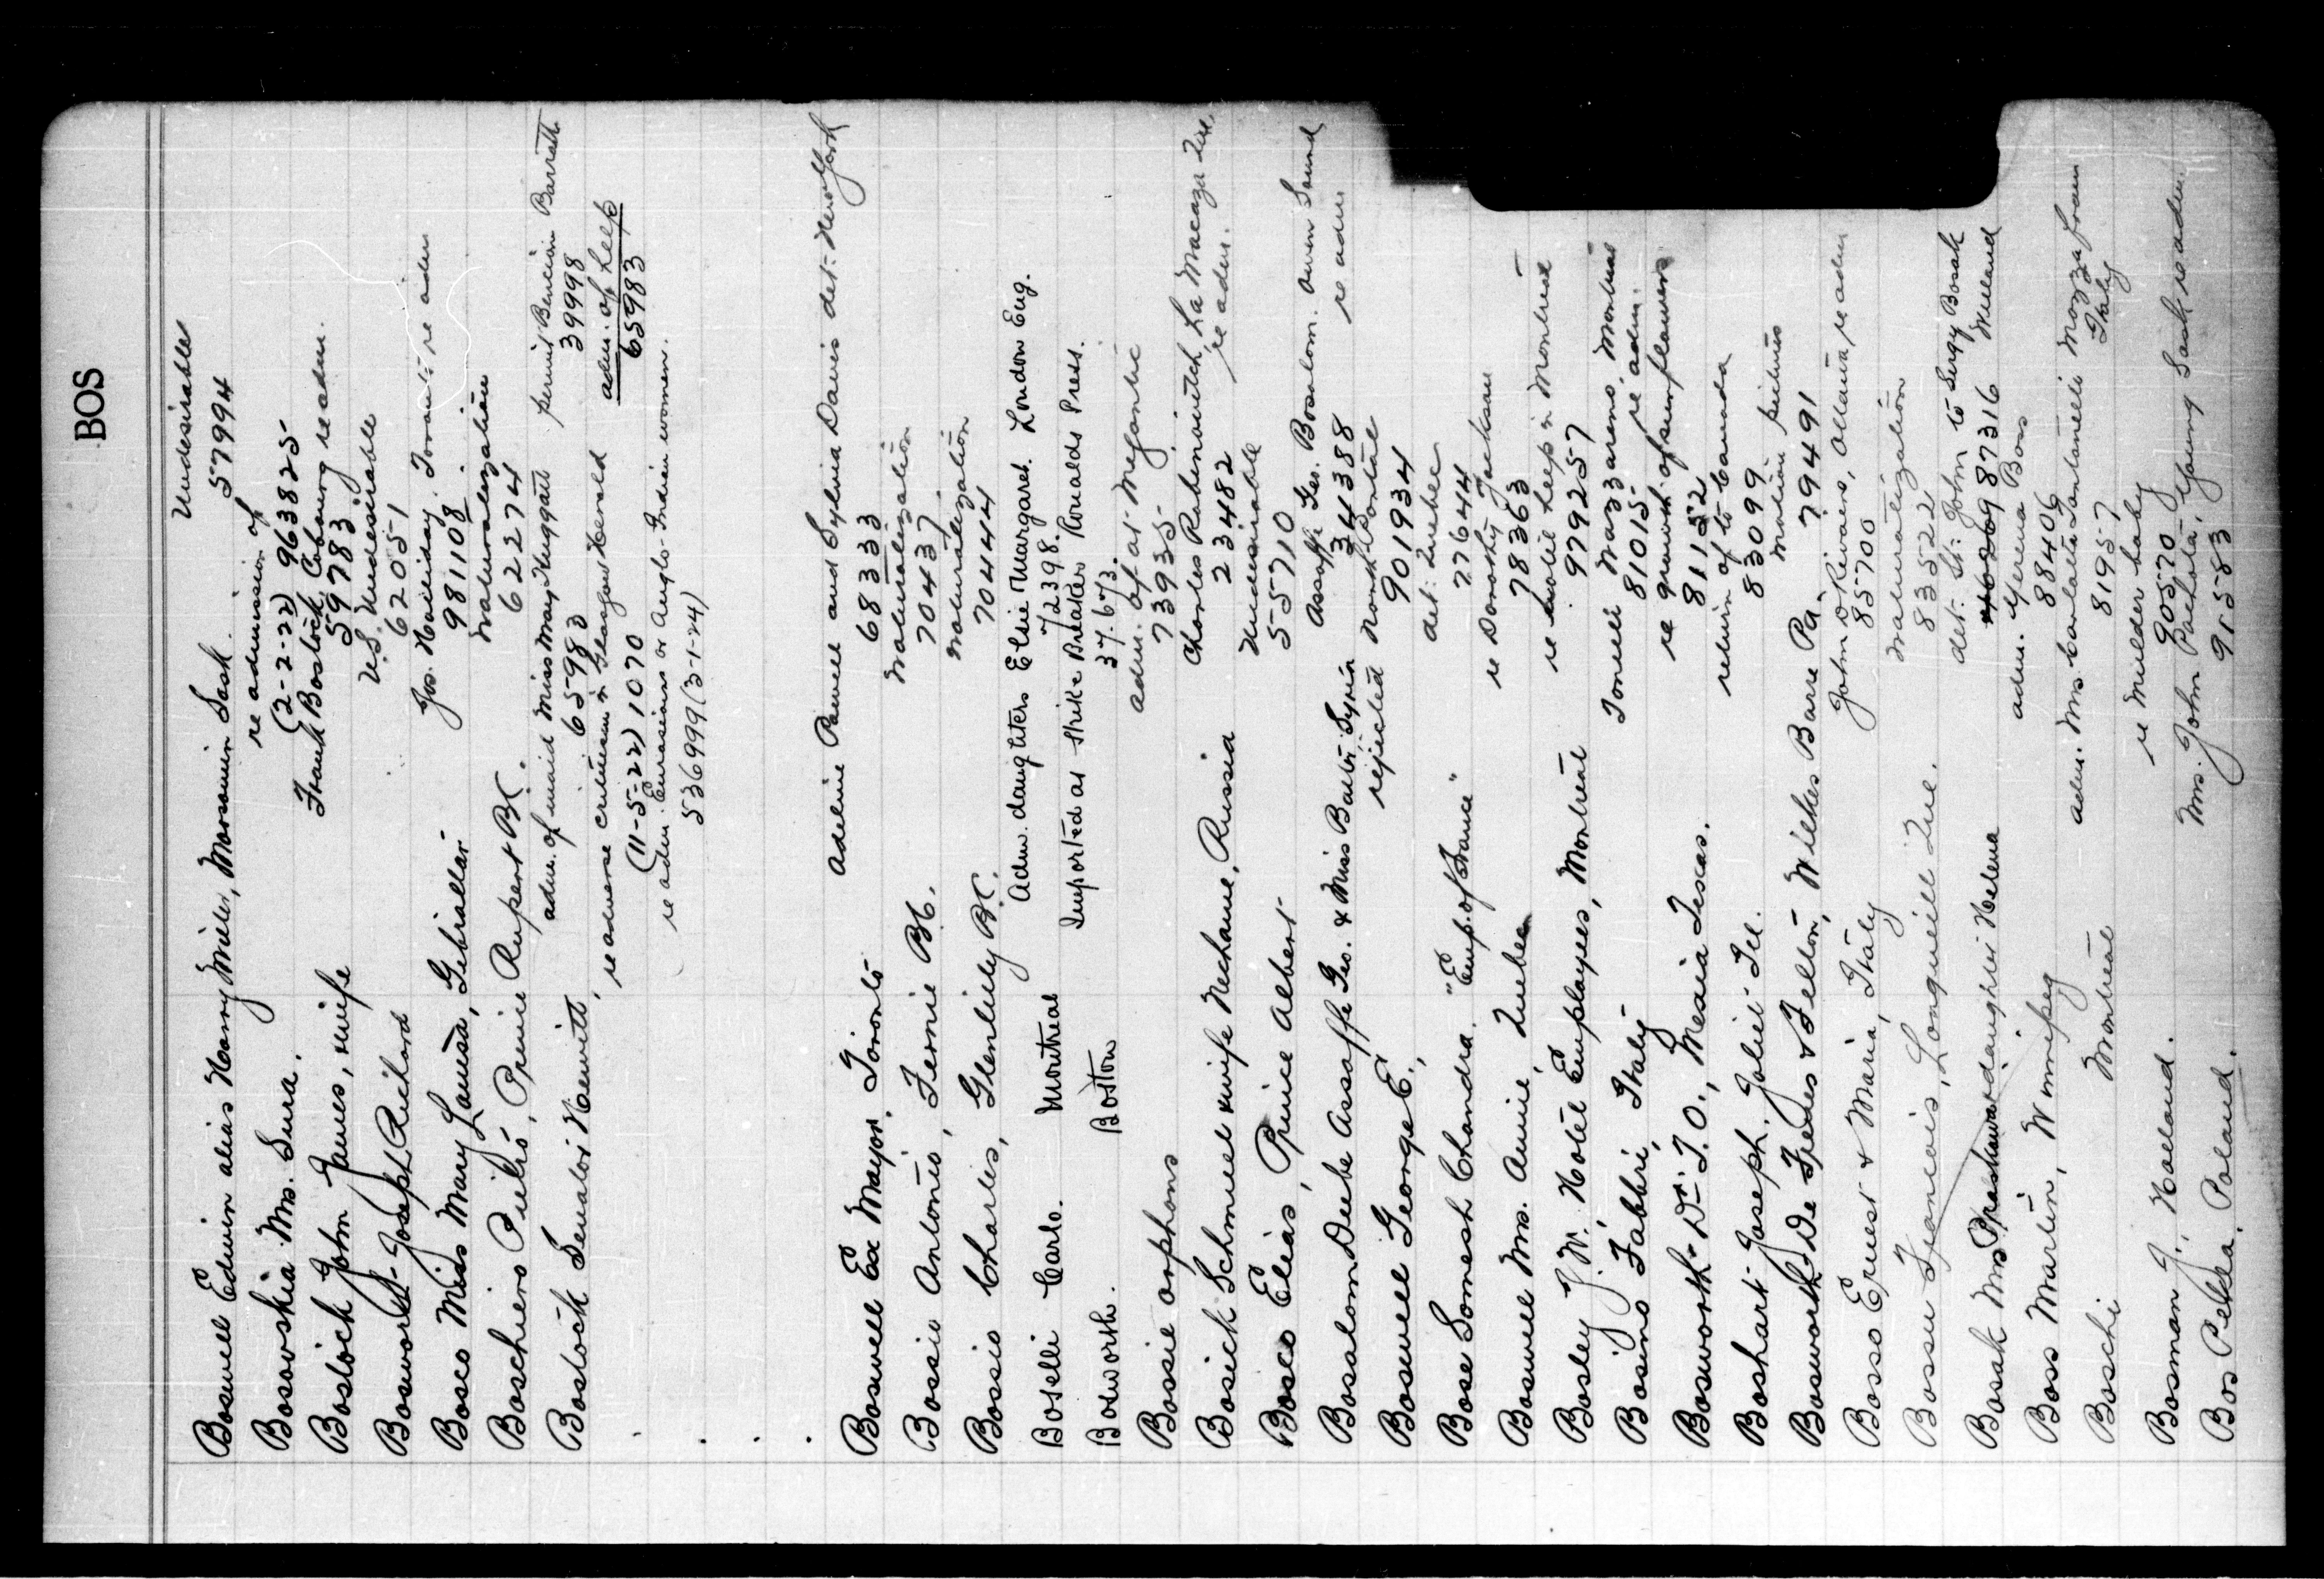 BOS
Boswell Edwin alias Harry Miller, Mossomin Sask. Undesirable
57994
Bosovskia Mrs. Sura. re admission of
(2-2-22) 963825
Bostock John James, wife Frank Bostock, Cobourg re adm.
59783
Bosworth Joseph Richard U.S. Undesirable
62051
Bosco Miss Mary Louisa, Gibraltar Jos. Halliday, Toronto re adm
981108
Boschiero Pietro, Prince Rupert BC. Naturalization
62274
Bostock Senator Hewitt adm. of maid Miss May Huggatt permit Bencion Barratt
65983 39998
re adverse criticism in Glasgow Herald adm. of help
(11-5-22) 1070 65983
re adm. Eurasians or Anglo-Indian women.
536999 (3-1-24)
Boswell Ex Mayor, Toronto Adeline Powell and Sylvia Davis det: New York
68333
Bosio Antonio, Fernie BC. Naturalization
70437
Bossio Charles, Glenlilly BC. Naturalization
70444
Boselli Carlo. Montreal Adm. daughters Elsie Margaret. London Eng.
72398.
Bosworth. Boston Imported as strike Breaker Ronalds Press.
37.673.
Bossie orphans adm. of at Megantic
73935
Bosich Schmuel wife Nechame, Russia Charles Rabinovitch, La Macaza Que.
23482 re adm.
Bosco Elias, Prince Albert Undesirable
55710
Bossalom Deebe Assoffe Geo. & Miss Bactor, Syria Assoffe Geo. Bossalom. Owen Sound
344388 re adm
Boswell George E., rejected North Portal
901934
Bose Somesh Chandra. "Emp. of France" det: Quebec
27644
Boswell Mrs. Annie, Quebec re Dorothy Jackson
78363
Bosley J.W. Hotel Employees, Montreal re hotel help in Montreal
979257
Bosino Fabbri, Italy Tonelli Nazzareno, Montreal
81015 re adm.
Bosworth Dr. T.O., Mexia Texas. re growth of sunflowers
81152
Boshart Joseph, Joliet Ill. return of to Canada
83099
Bosworth De Frenes & Felton, Wilkes Barre Pa. Motion pictures
79491
Bosso Ernest & Maria, Italy John D Rivaers, Ottawa, re adm
85700
Bossu Francois, Longueill Que. Naturalization
83522
Bosak Mrs daughter Helena det: St. John to Sugy Bosak
987316 Milland
Boss Martin, Winnipeg adm. Verena Boss
88406
Boschi Montreal adm. Mrs. Carlota Santarelli Mozza from
81957 Italy
Bosman J., Holland. re Mulder baby
90570
Bos Pekla, Poland. Mrs. John Pachota, Young Sask re adm.
91583